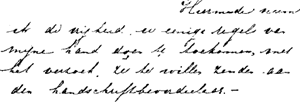 Hiermede neem
ik de vrijheid u eenige regels van
mijne hand doen te toekomen, met
het verzoek ze te willen zenden aan
den handschriftbeoordeelaar. –